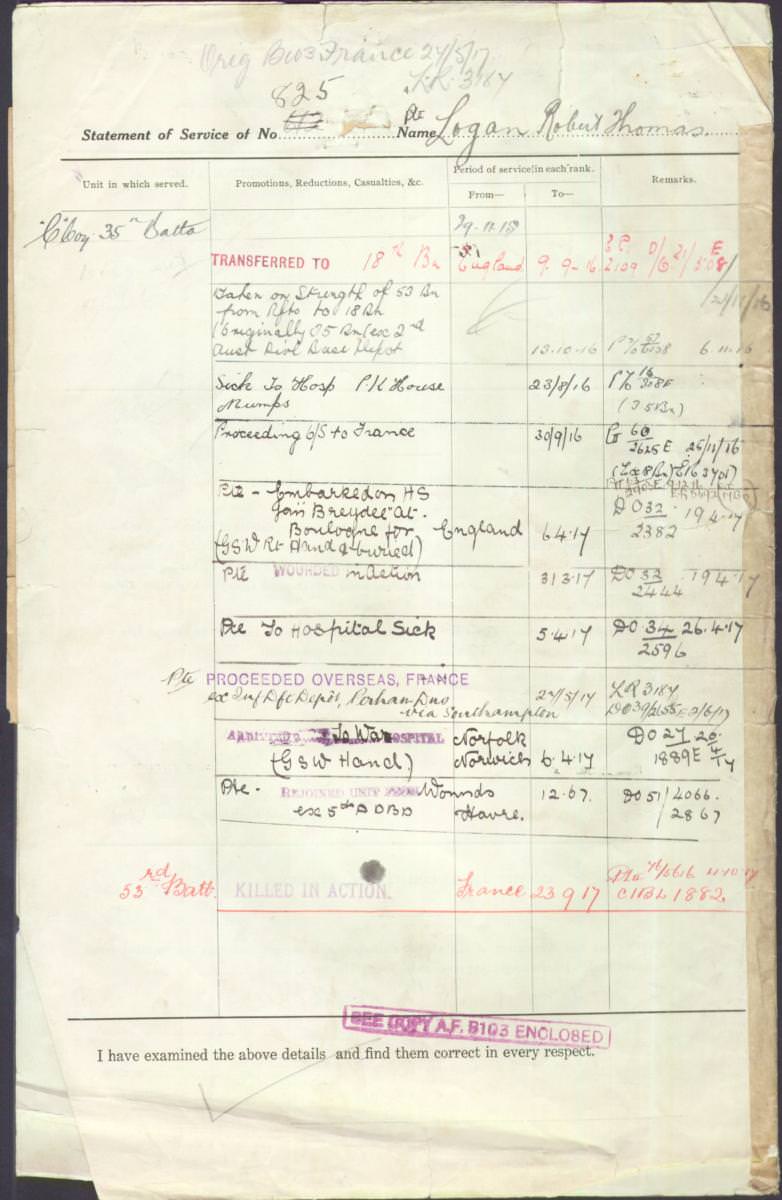 Orig B103 France 24/5/17
L.R. 3187
825
Statement of Service of No. Pte Name Logan Robert Thomas.
Unit in which served.
Promotions, Reductions, Casualties, &c.
Period of service in each rank.
From— To—
Remarks.
"C" Coy. 35th Battn
29.11.15
TRANSFERRED TO 18th Bn England 9.9.16
Taken on Strength of 53 Bn
from Rfts to 18 Bn
(originally 35 Bn) ex 2nd
Aust Divl Base Depot 13.10.16 6.11.16
Sick To Hosp P.K House 23/8/16
Mumps (35Bn)
Proceeding O/S to France 30/9/16 25/11/16
2625E
Pte - Embarked on HS
Jan Breydel at
Boulogne for England 6.4.17 DO 32 19.4.17
(GSW Rt Hand & buried) 2382
Pte WOUNDED in Action 31 3.17 DO 32 19 4.17
2444
Pte To Hospital Sick 5.4.17 DO 34 26.4.17
2596
Pte PROCEEDED OVERSEAS, FRANCE
ex Depot, Perham Dns 24/5/17 LR 3187
via Southampton
ADMITTED To War HOSPITAL Norfolk DO 27 20
(GSW Hand) Norwich 6.4.17 1889E 4/17
Pte - REJOINED UNIT FROM Wounds DO 51/4066.
ex 5th A D B D Havre. 2867
53rd Batt. KILLED IN ACTION. France 23 9 17 11-10-17
1882.
SEE COPY A.F. B103 ENCLOSED
I have examined the above details and find them correct in every respect.